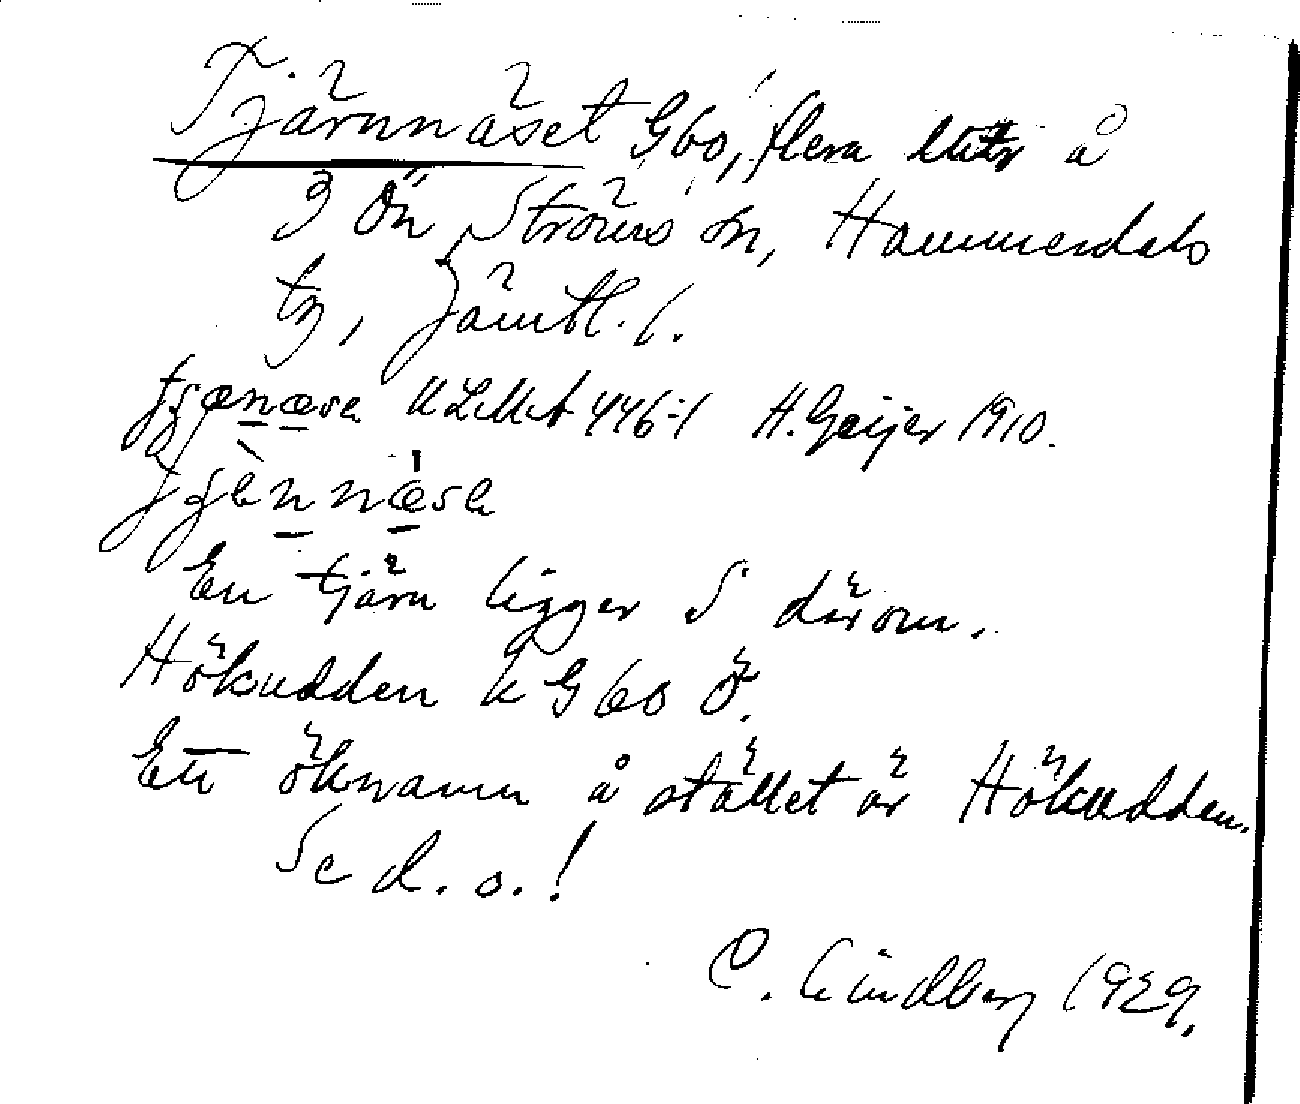 Tjärnnäset G60, flera å
3 Ön Ströms sn, Hammerdals
tg, Jämtl. l.
ULMA 446:1 H. Geijer 1910.

En tjärn ligger S därom.
Hökudden k G60 Ö.
Ett öknamn å stället är Hökudden.
Se d. o.!
C. Lindberg 1929.